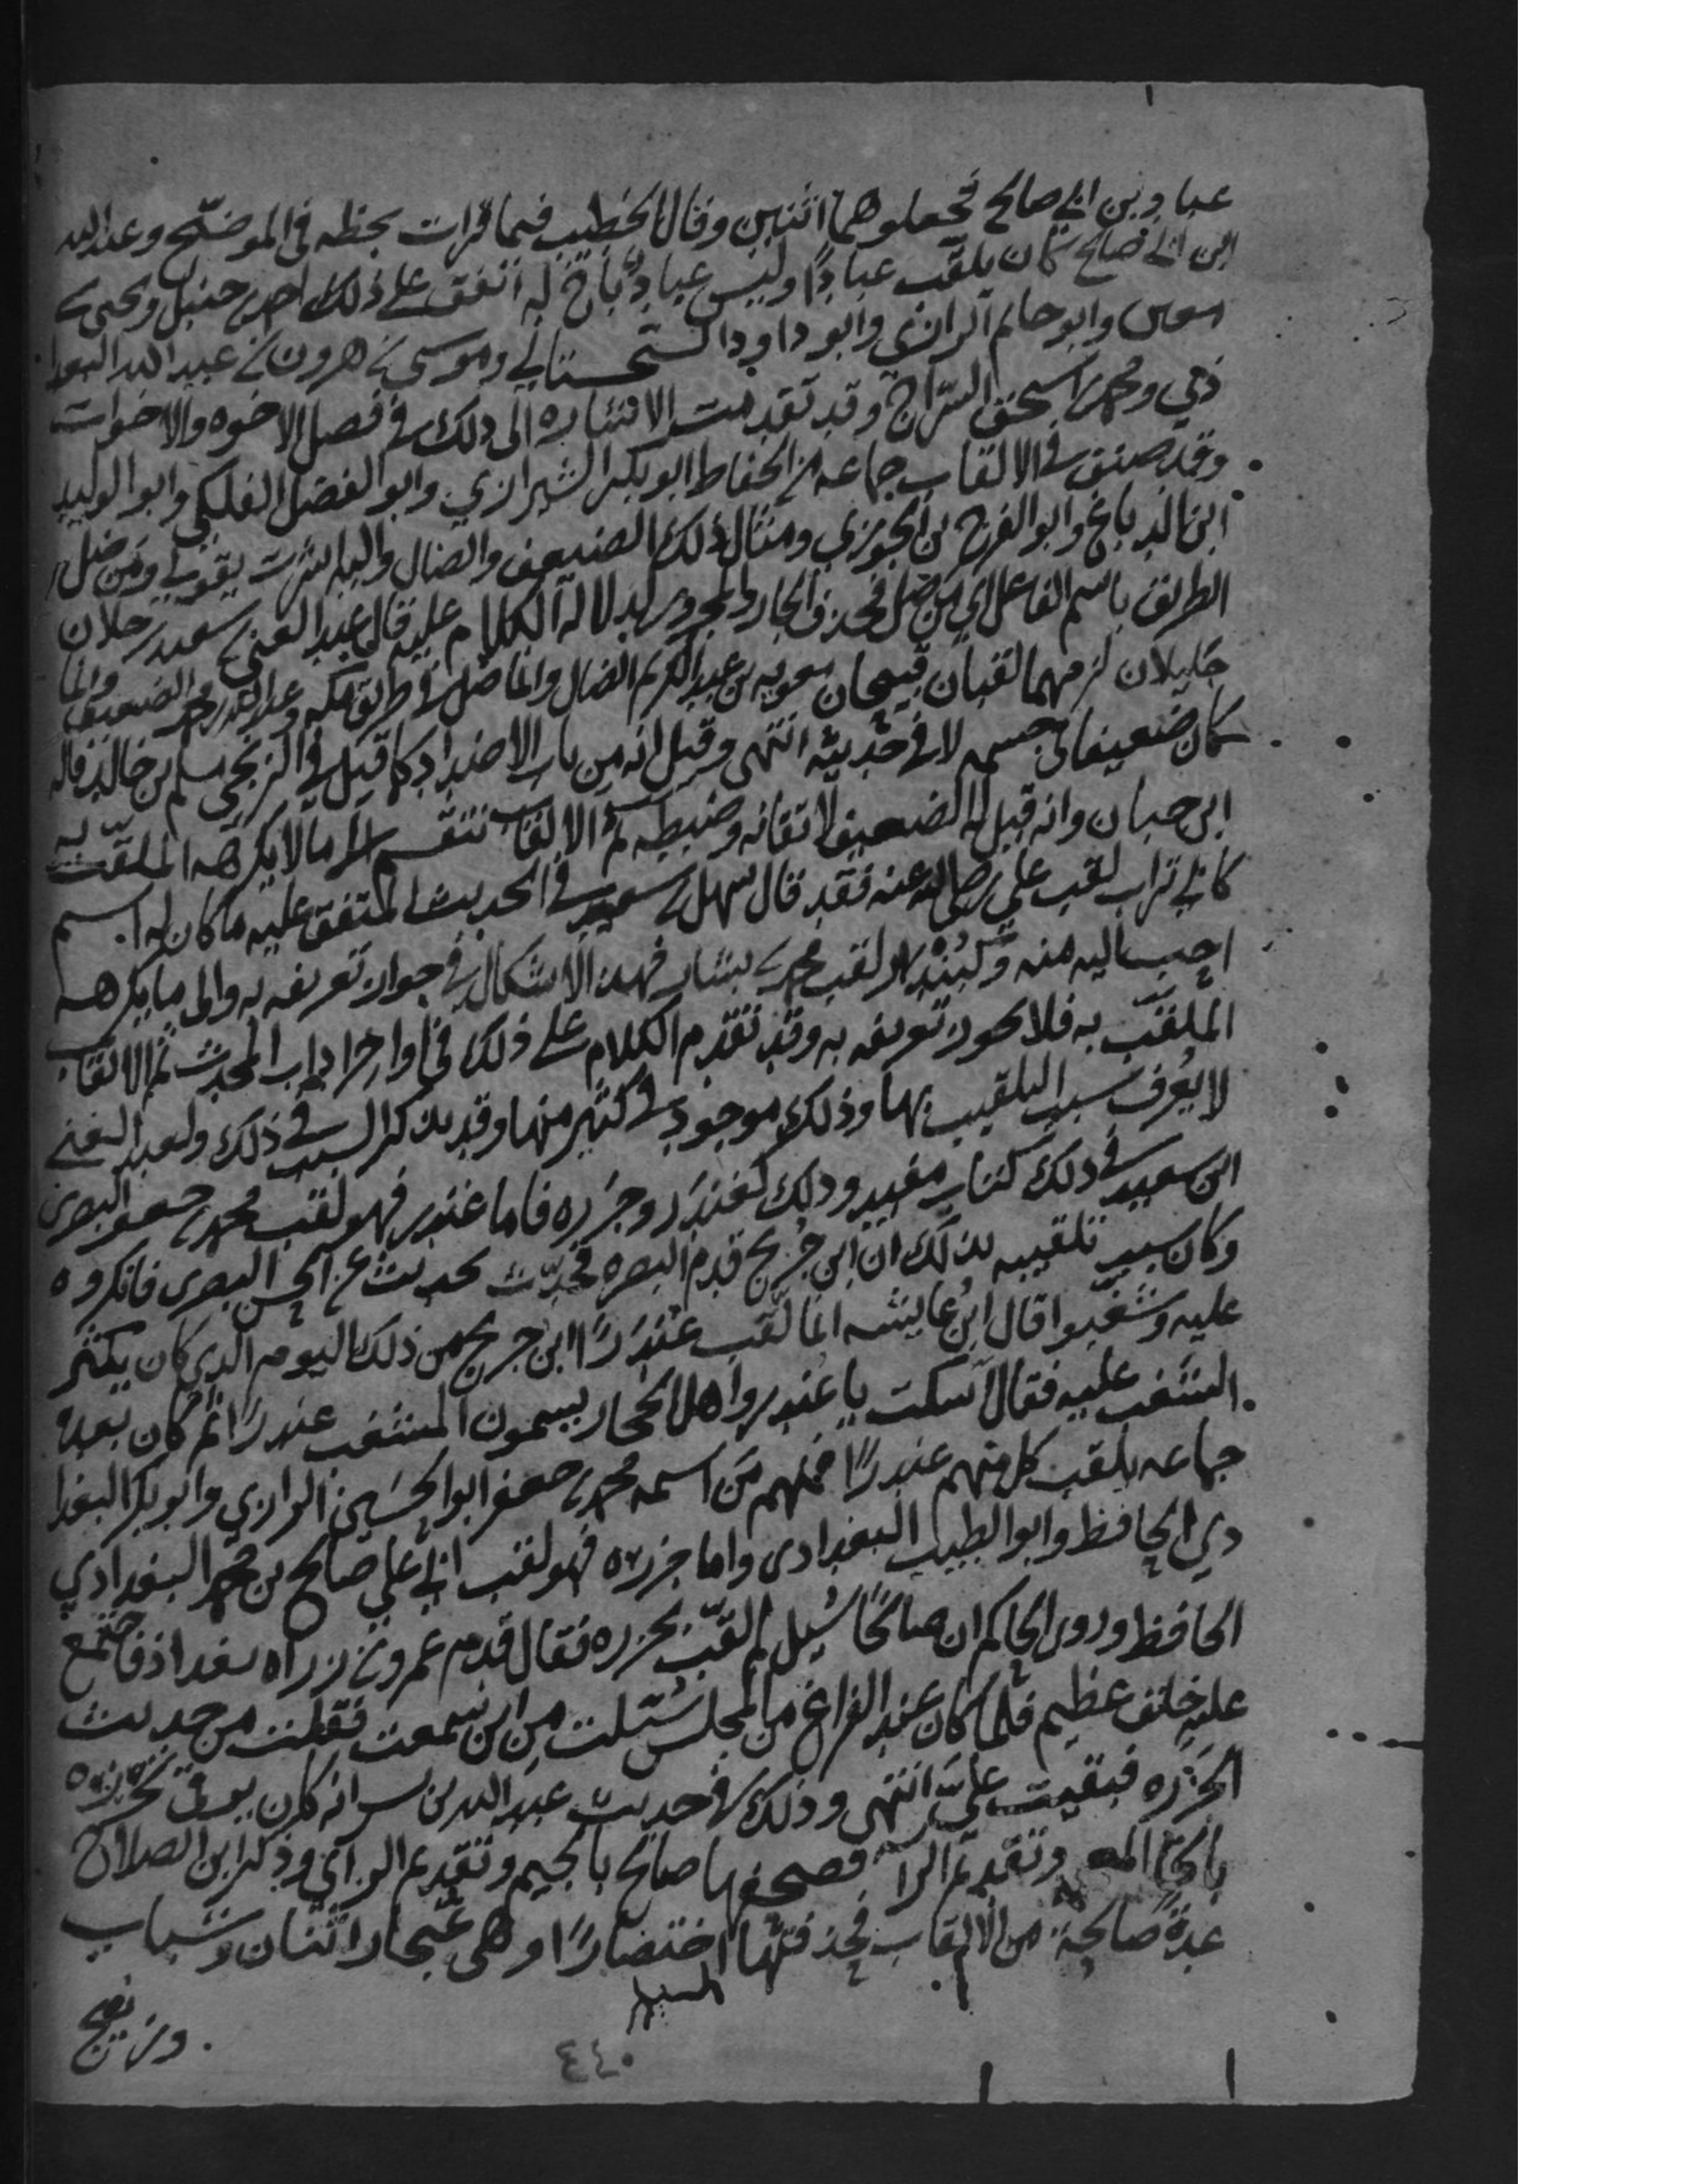 عباد بن ابي صالح فجعلوهما اثنين وقال الخطيب فيما قرات بخطه في الموضح وعبدالله
ابن ابي صالح كان يلقب عبادًا وليس عبادٌ باخ له اتفق على ذلك احمد بن حنبل ويحيى بن
معين وابو حاتم الرازي وابو داود السجستاني وموسى بن هرون بن عبدالله البغدا
دي ومحمد بن اسحق السراج وقد تقدمت الاشاره الى ذلك في فصل الاخوه والاخوات
وقد صنف في الالقاب جماعه من الحفاظ ابو بكر الشيرازي وابو الفضل الفلكي وابو الوليد
ابن الدباغ وابو الفرج بن الجوزي ومثال ذلك الضعيف والضال واليه اشرت بقولي ومن ضل
الطريق باسم الفاعل اي من ضل فحذف الجار والمجرور لدلالة الكلام عليه قال عبد الغني بن سعيد رجلان
جليلان لزمهما لقبان قبيحان معويه بن عبد الكريم الضال وانما ضل في طريق مكه وعبد الله بن محمد الضعيف وانما
كان ضعيفا في جسمه لا في حديثه انتهى وقيل انه من باب الاضداد كما قيل في الزنجي مسلم بن خالد قاله
ابن حبان وانه قيل له الضعيف لاتقانه وضبطه ثم الالقاب تنقسم الى ما لا يكرهه الملقب به
كابي تراب لقب علي رضي الله عنه فقد قال سهل بن سعد في الحديث المتفق عليه ما كان له اسم
احب اليه منه وكبندار لقب محمد بن بشار فهذا لا اشكال في جواز تعريفه به والى ما يكرهه
الملقب به فلا يجوز تعريفه به وقد تقدم الكلام على ذلك في اواخر اداب المحدث ثم الالقاب
لا يعرف سبب التلقيب بها وذلك موجود في كثير منها وقد يذكر السبب في ذلك ولعبد الغني
ابن سعيد في ذلك كتاب مفيد وذلك كغندر وجزره فاما غندر فهو لقب محمد بن جعفر البصري
وكان سبب تلقيبه بذلك ان ابن جريج قدم البصره فحدث بحديث عن الحسن البصري فانكروه
عليه وشغبوا قال ابن عايشه انما لقب غندرًا ابن جريج من ذلك اليوم الذي كان يكثر
الشغب عليه فقال اسكت يا غندر واهل الحجاز يسمون المشغب غندرًا ثم كان بعده
جماعه يلقب كل منهم غندرًا فمنهم من اسمه محمد بن جعفر ابو الحسين الرازي وابو بكر البغدا
دي الحافظ وابو الطيب البغدادي واما جزره فهو لقب ابي علي صالح بن محمد البغدادي
الحافظ وروى الحاكم ان صالحًا سُيل لم لقب بجزره فقال قدم عمرو بن زراره بغداد فاجتمع
عليه خلق عظيم فلما كان عند الفراغ من المجلس سُئلت من اين سمعت فقلت من حديث
الجزره فبقيت عليّ انتهى وذلك في حديث عبد الله بن بسر انه كان يرقي بخرزه
بالخا المعـ وتقديم الرآ فصحفها صالح بالجيم وتقديم الزاي وذكر ابن الصلاح
عدة صالحة من الالقاب فحذفتها اختصارًا وهي غنجار اثنان وشباب
ورنيج
٤٤٠